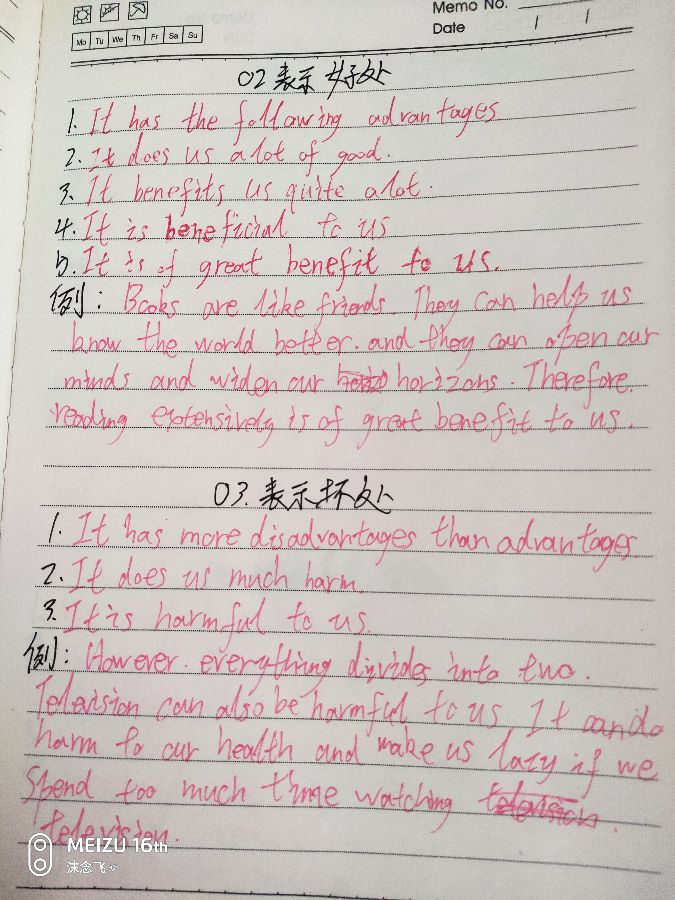 Memo No.
Mo Tu We Th Fr Sa Su
Date / /
02 表示好处
1. It has the following advantages
2. It does us a lot of good.
3. It benefits us quite a lot.
4. It is beneficial to us
5. It is of great benefit to us.
例: Books are like friends. They can help us
know the world better. and they can open our
minds and widen our horizons. Therefore.
reading extensively is of great benefit to us.
03. 表示坏处
1. It has more disadvantages than advantages
2. It does us much harm
3. It is harmful to us.
例: However. everything divides into two.
Television can also be harmful to us. It can do
harm to our health and make us lazy if we
spend too much time watching television.
television.
MEIZU 16th
沫念飞